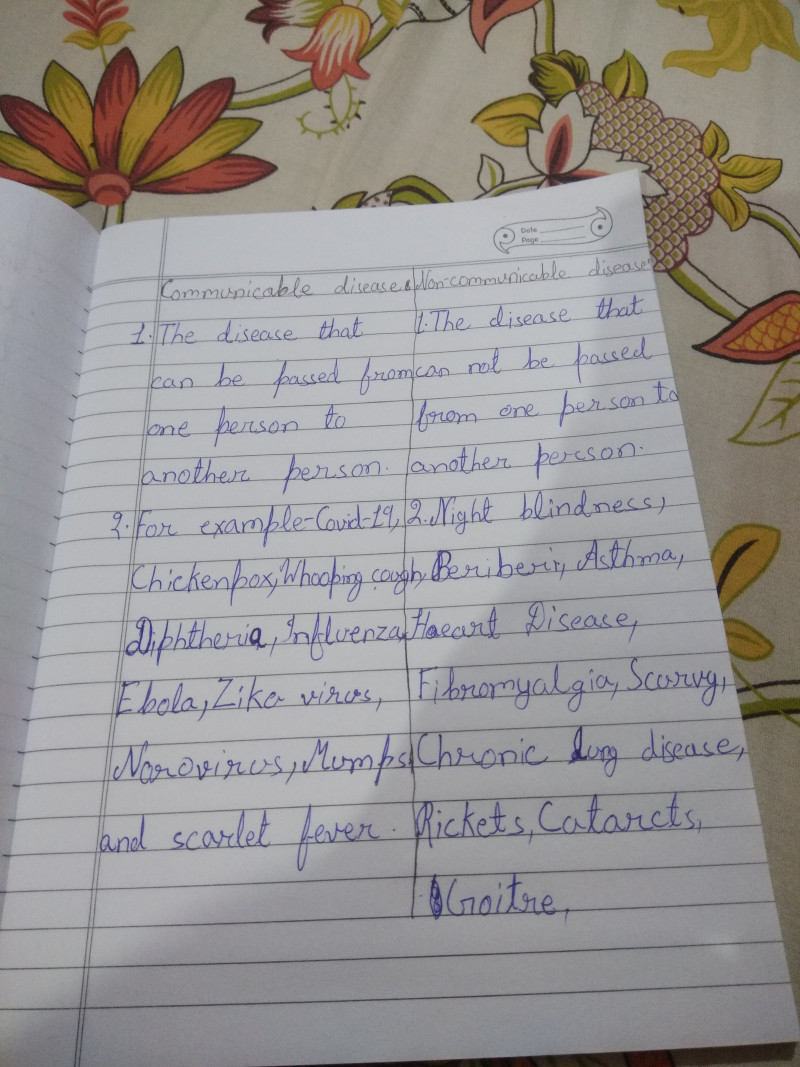 Date
Page
Communicable diseases Non-communicable diseases
1. The disease that
can be passed from
one person to
another person.
2. For example-Covid-19,
Chickenpox, Whooping cough,
Diphtheria, Influenza,
Ebola, Zika virus,
Norovirus, Mumps,
and scarlet fever.
1. The disease that
can not be passed
from one person to
another person.
2. Night blindness,
Beriberi, Asthma,
Haeart Disease,
Fibromyalgia, Scurvy,
Chronic Lung disease,
Rickets, Catarcts,
Goitre,